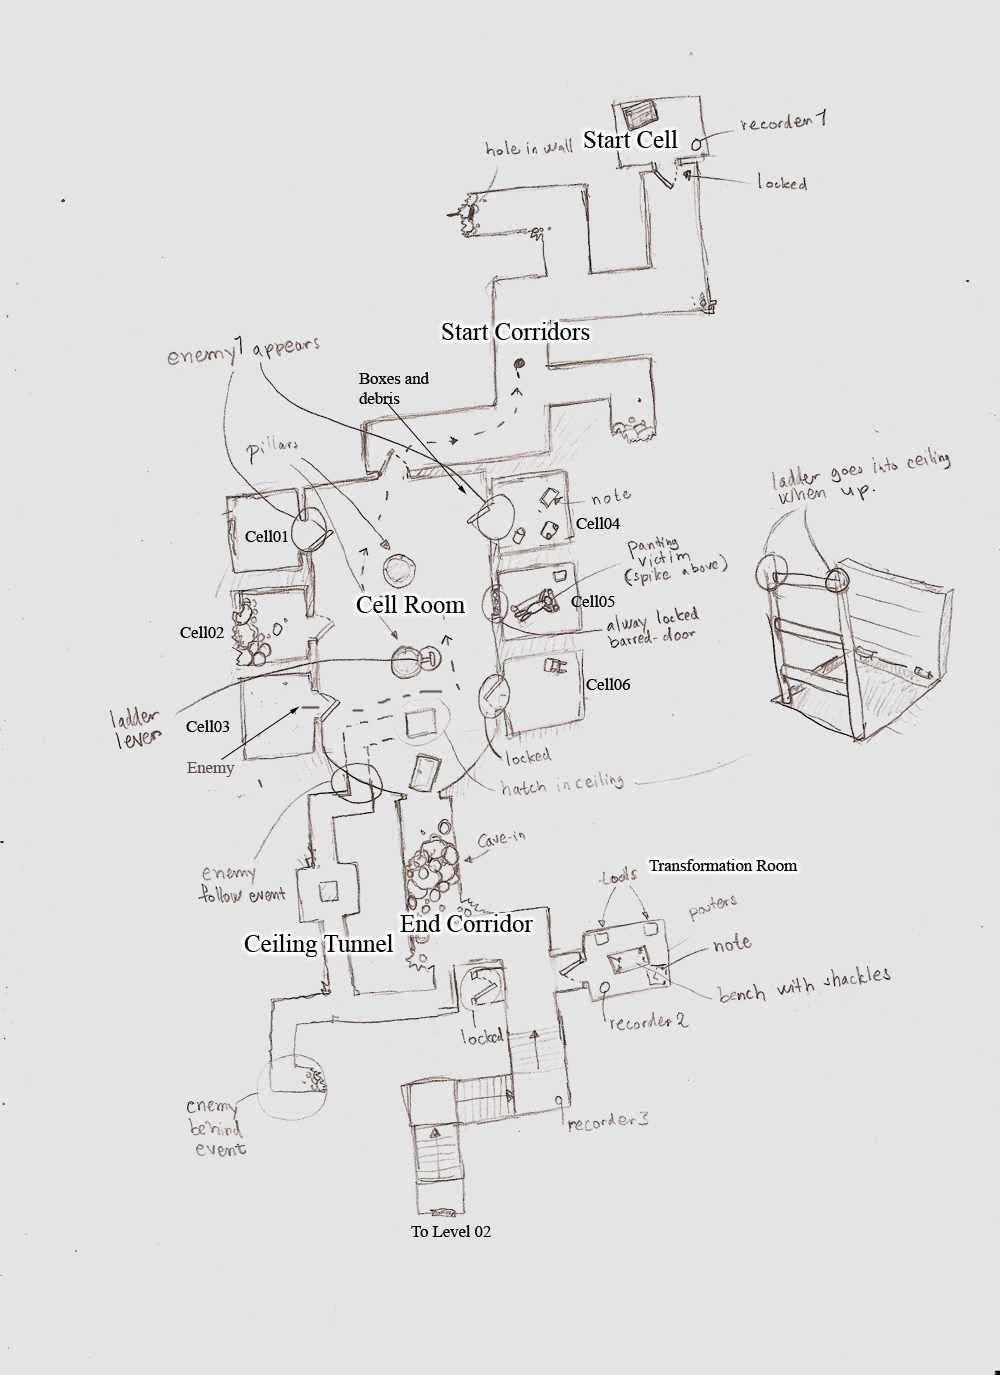 recorder 1
Start Cell
hole in wall
locked
Start Corridors
enemy 1 appears
Boxes and
debris
pillars
ladder goes into ceiling
when up.
note
Cell01
Cell04
panting
victim
(spike above)
Cell05
Cell Room
alway locked
barred-door
Cell02
Cell06
ladder
lever
Cell03
Enemy
locked
hatch in ceiling
Cave-in
enemy
follow event
tools
Transformation Room
posters
End Corridor
Ceiling Tunnel
note
bench with shackles
recorder 2
locked
enemy
behind
event
recorder 3
To Level 02